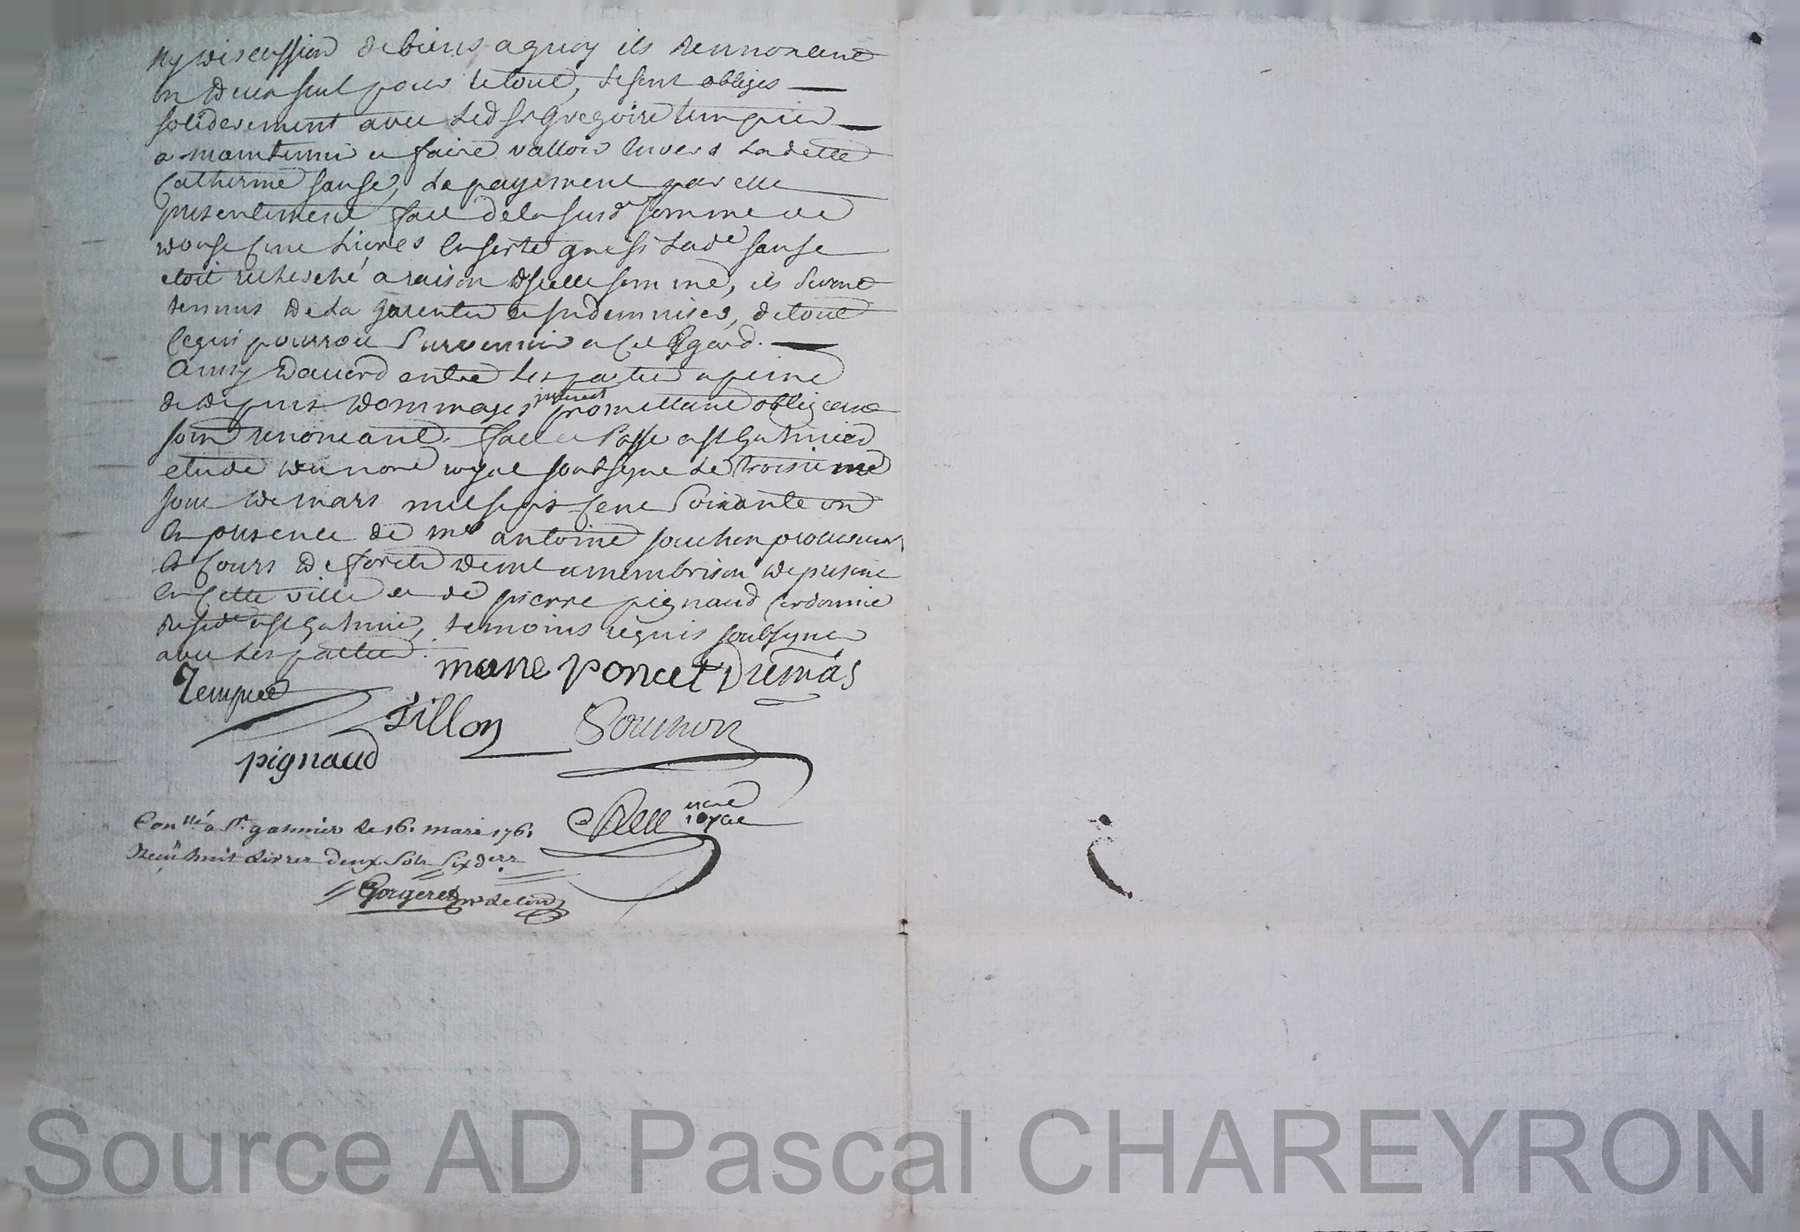 ny discussion de biens a quoy ils Rennoncent
un deux seul pour le tout, se sont obliges
soliderement avec led Sr Gregoire tempier
a maintenir et faire valloir Envers Ladette
Catherine sause, Le payement par elle
presentement fait de la susde somme de
douse cent Livres En sorte que si Lade sause
etoit recherché a raison d'jcelle somme, ils seront
tennus de La garentir et jndemniser, de tout
Ce qui pourroit survennir a Cet Egard.
Ainsy d'accord entre Les parties a peine
de depens dommages interest promettant obligeant
soum renoncant. fait et Passé a St Galmier
etude du nore royal soubsigné Le troisieme
jour de mars mil sept Cent Soixante un
En presence de me antoine souchon procureur
Es Cours de forets demt a membrison de present
En Cette ville et de pierre pignaud Cordonnie
Reside a St Galmier, temoins requis soubsignes
avec Les parties.
marie poncet Dumas
Tempier
fillon Souchon
pignaud
nore royal
Conllé a St galmier le 16 mars 1761
Receu huit Livres deux Sols six ders
Gorgeret